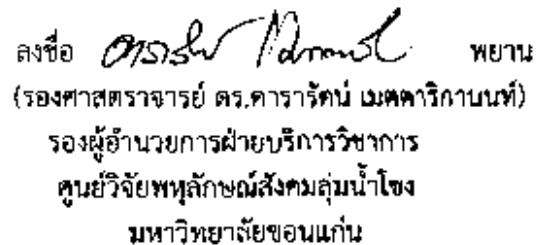 ลงชื่อ พยาน
(รองศาสตราจารย์ ดร.ดารารัตน์ เมตตาริกานนท์)
รองผู้อำนวยการฝ่ายบริการวิชาการ
ศูนย์วิจัยพหุลักษณ์สังคมลุ่มน้ำโขง
มหาวิทยาลัยขอนแก่น